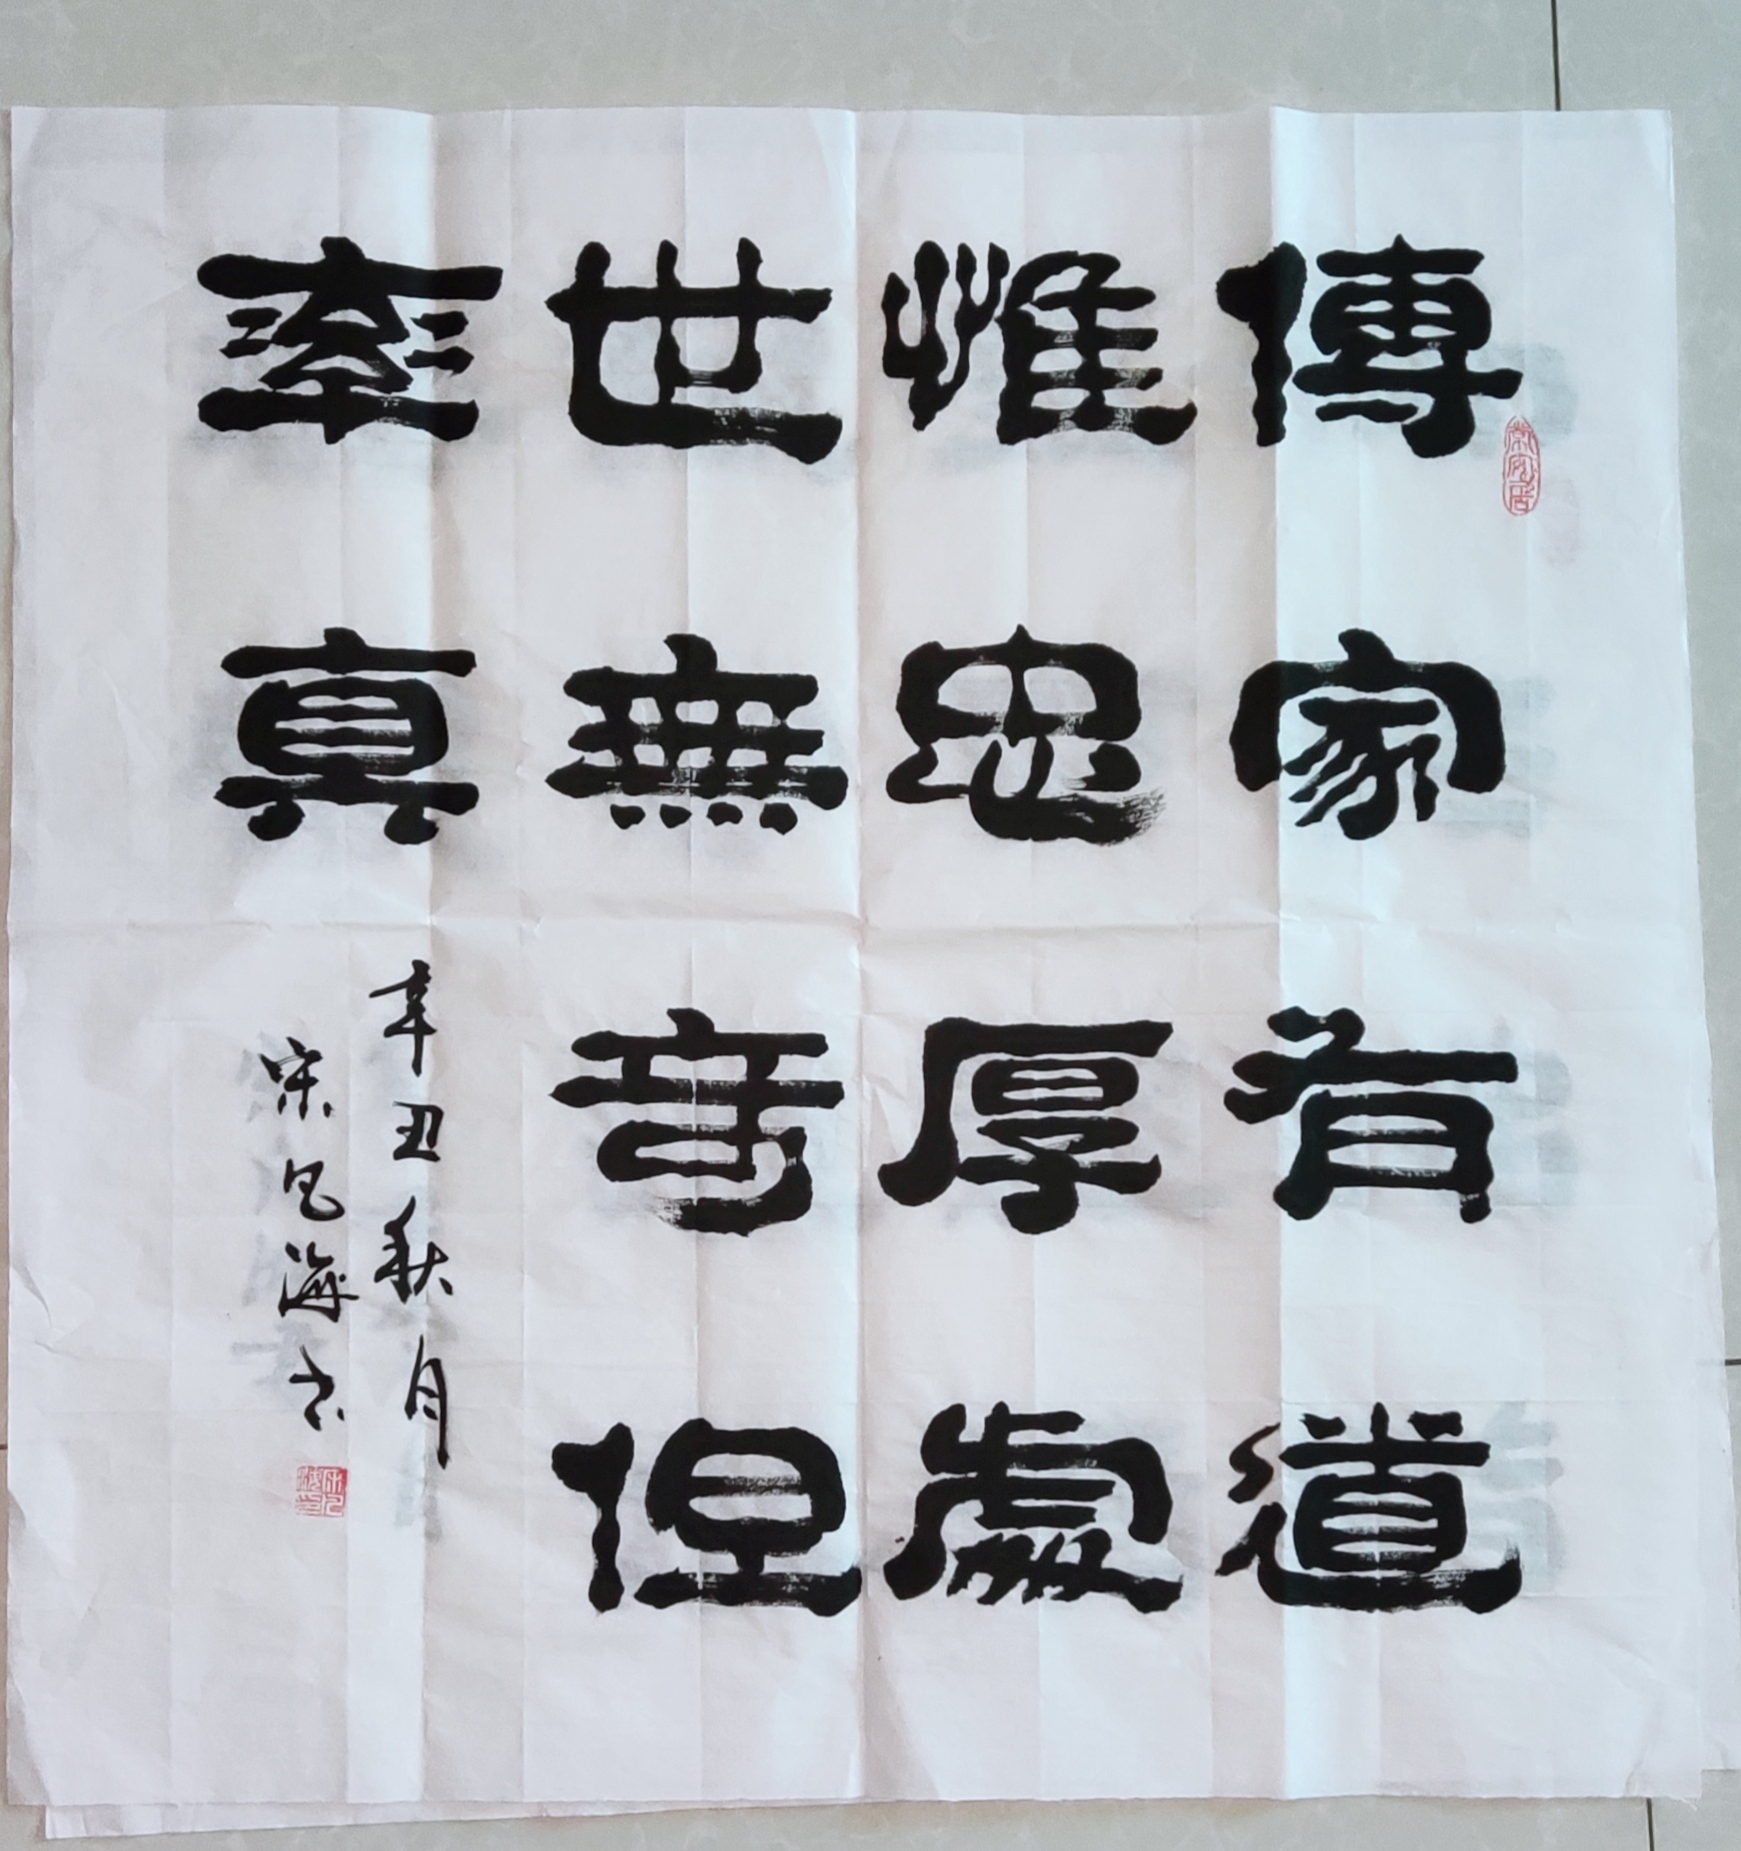 傳家有道
惟忠厚處
世無奇但
率真
辛丑秋月
宋凡海书